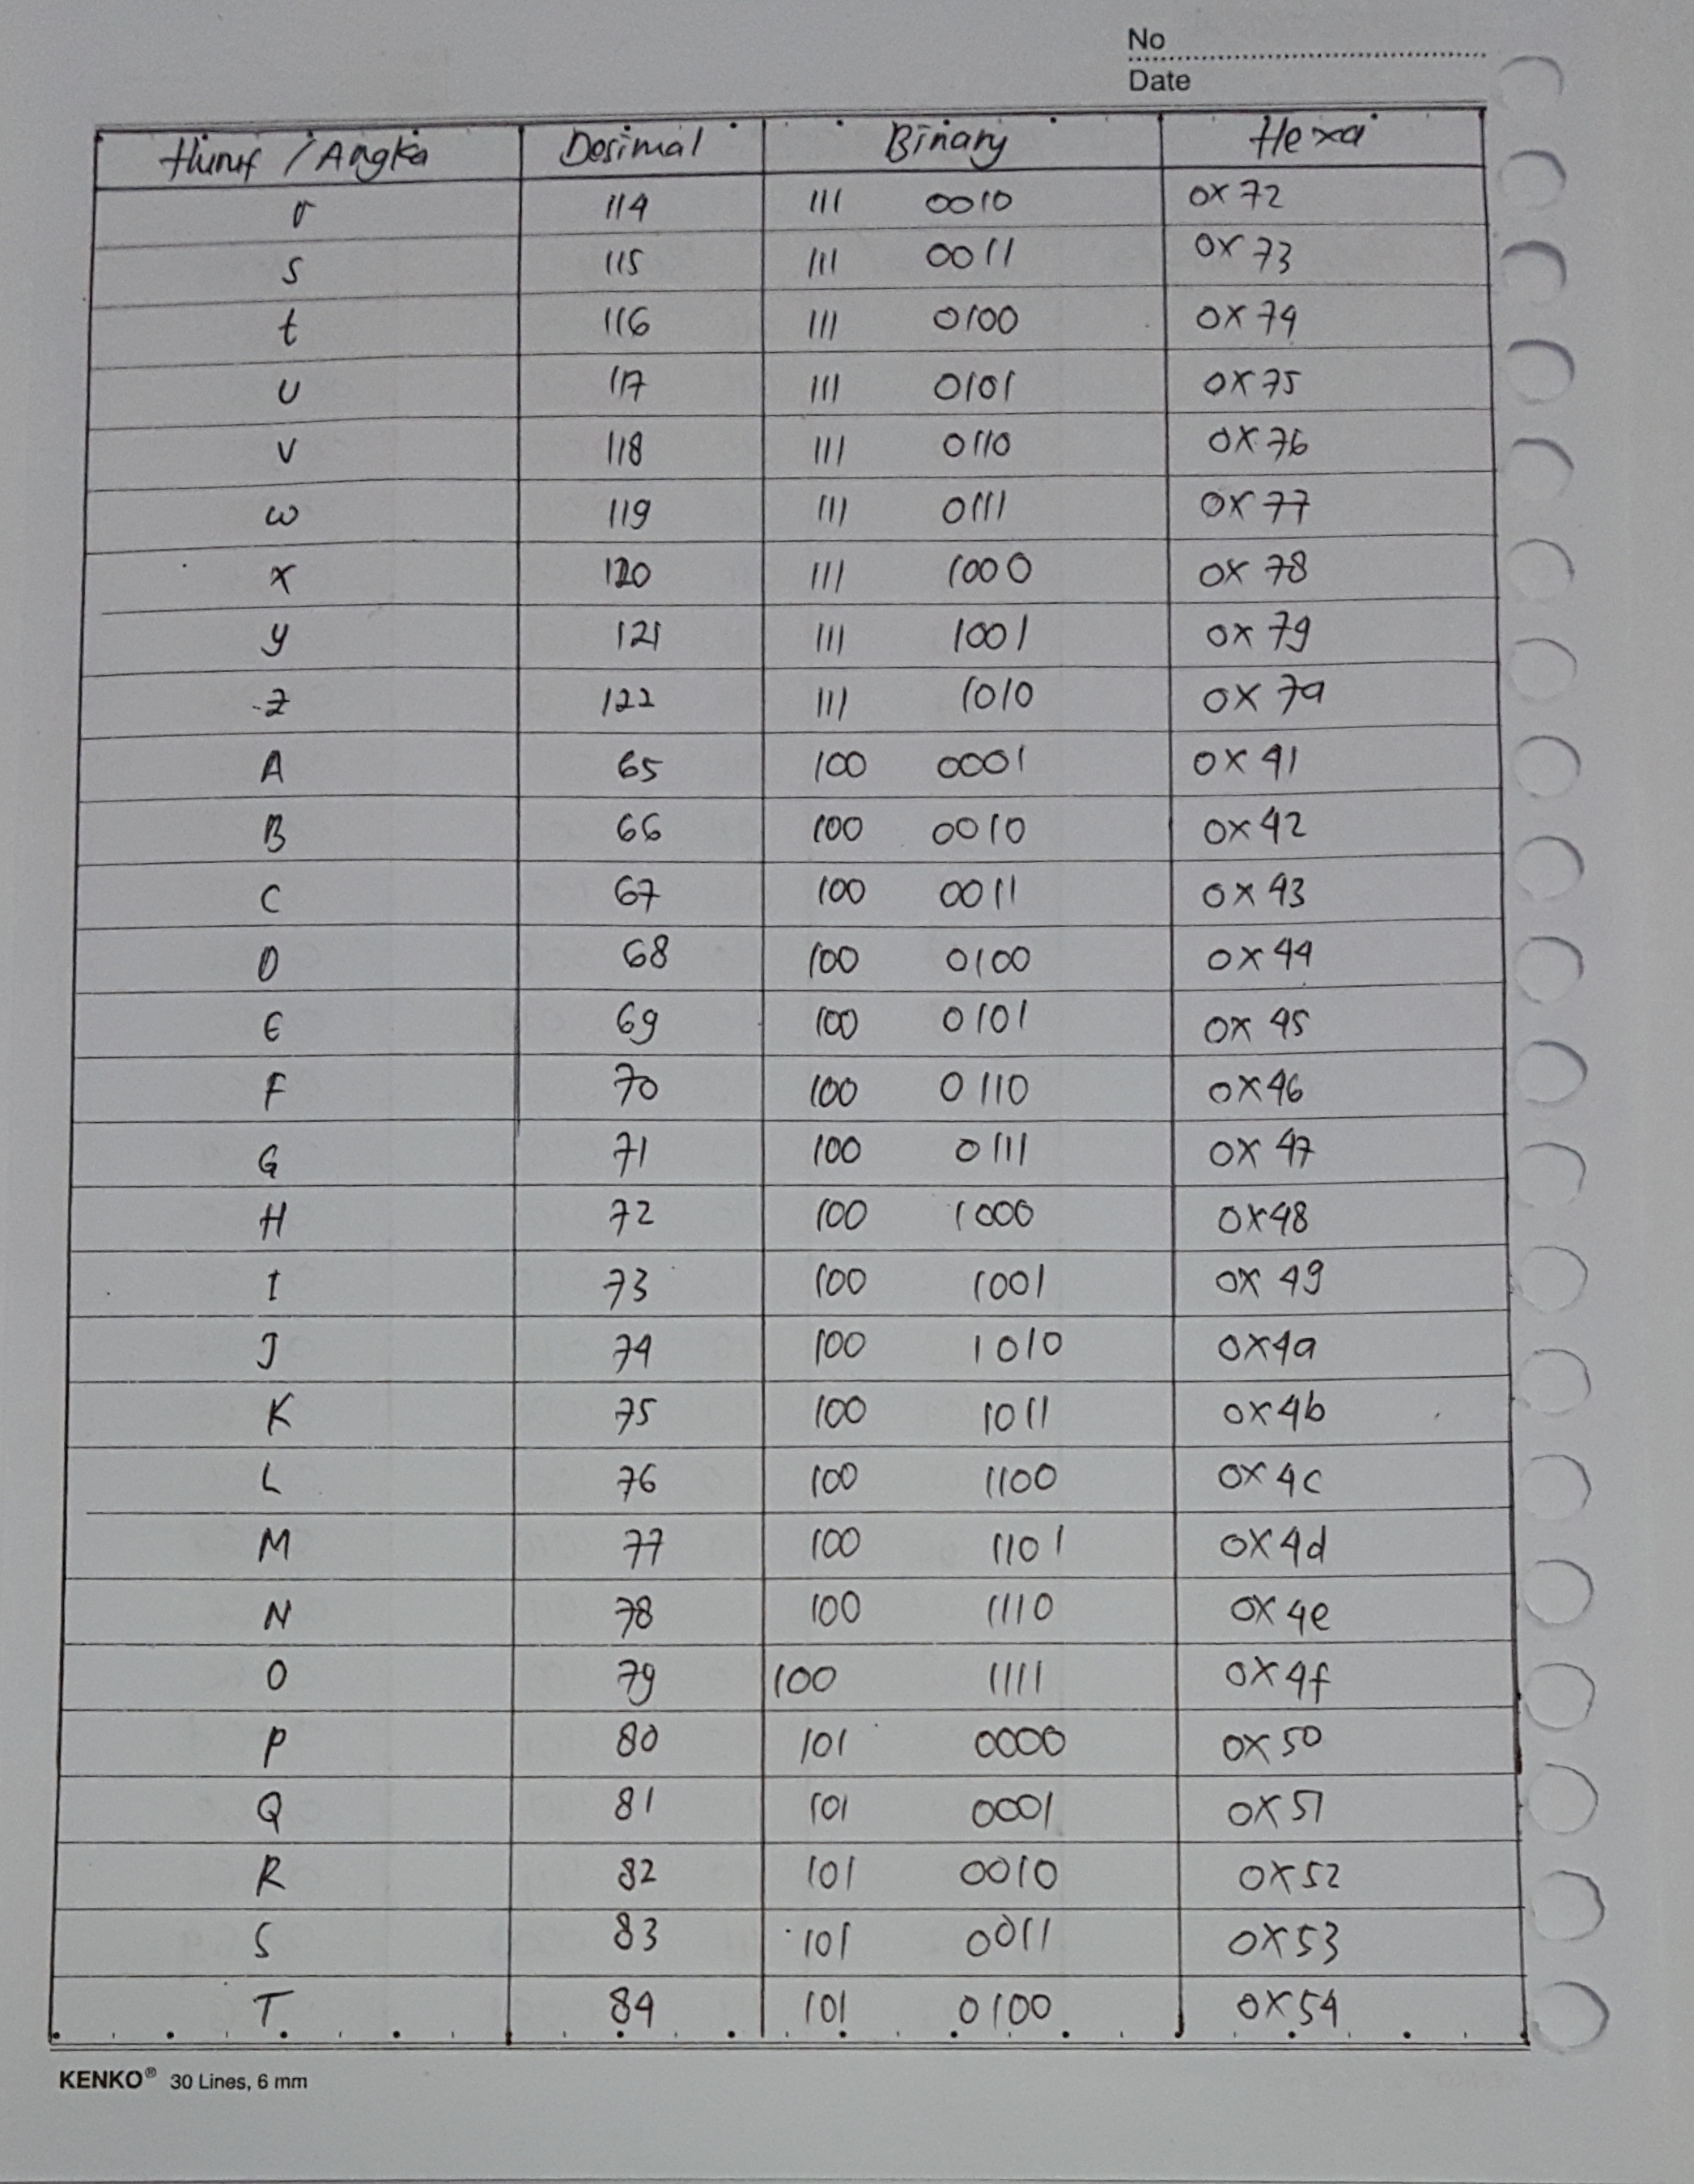 No
Date
Huruf / Angka Desimal Binary Hexa
r 114 111 0010 0x72
s 115 111 0011 0x73
t 116 111 0100 0x74
u 117 111 0101 0x75
v 118 111 0110 0x76
w 119 111 0111 0x77
x 120 111 1000 0x78
y 121 111 1001 0x79
z 122 111 1010 0x7a
A 65 100 0001 0x41
B 66 100 0010 0x42
C 67 100 0011 0x43
D 68 100 0100 0x44
E 69 100 0101 0x45
F 70 100 0110 0x46
G 71 100 0111 0x47
H 72 100 1000 0x48
I 73 100 1001 0x49
J 74 100 1010 0x4a
K 75 100 1011 0x4b
L 76 100 1100 0x4c
M 77 100 1101 0x4d
N 78 100 1110 0x4e
O 79 100 1111 0x4f
P 80 101 0000 0x50
Q 81 101 0001 0x51
R 82 101 0010 0x52
S 83 101 0011 0x53
T 84 101 0100 0x54
KENKO® 30 Lines, 6 mm